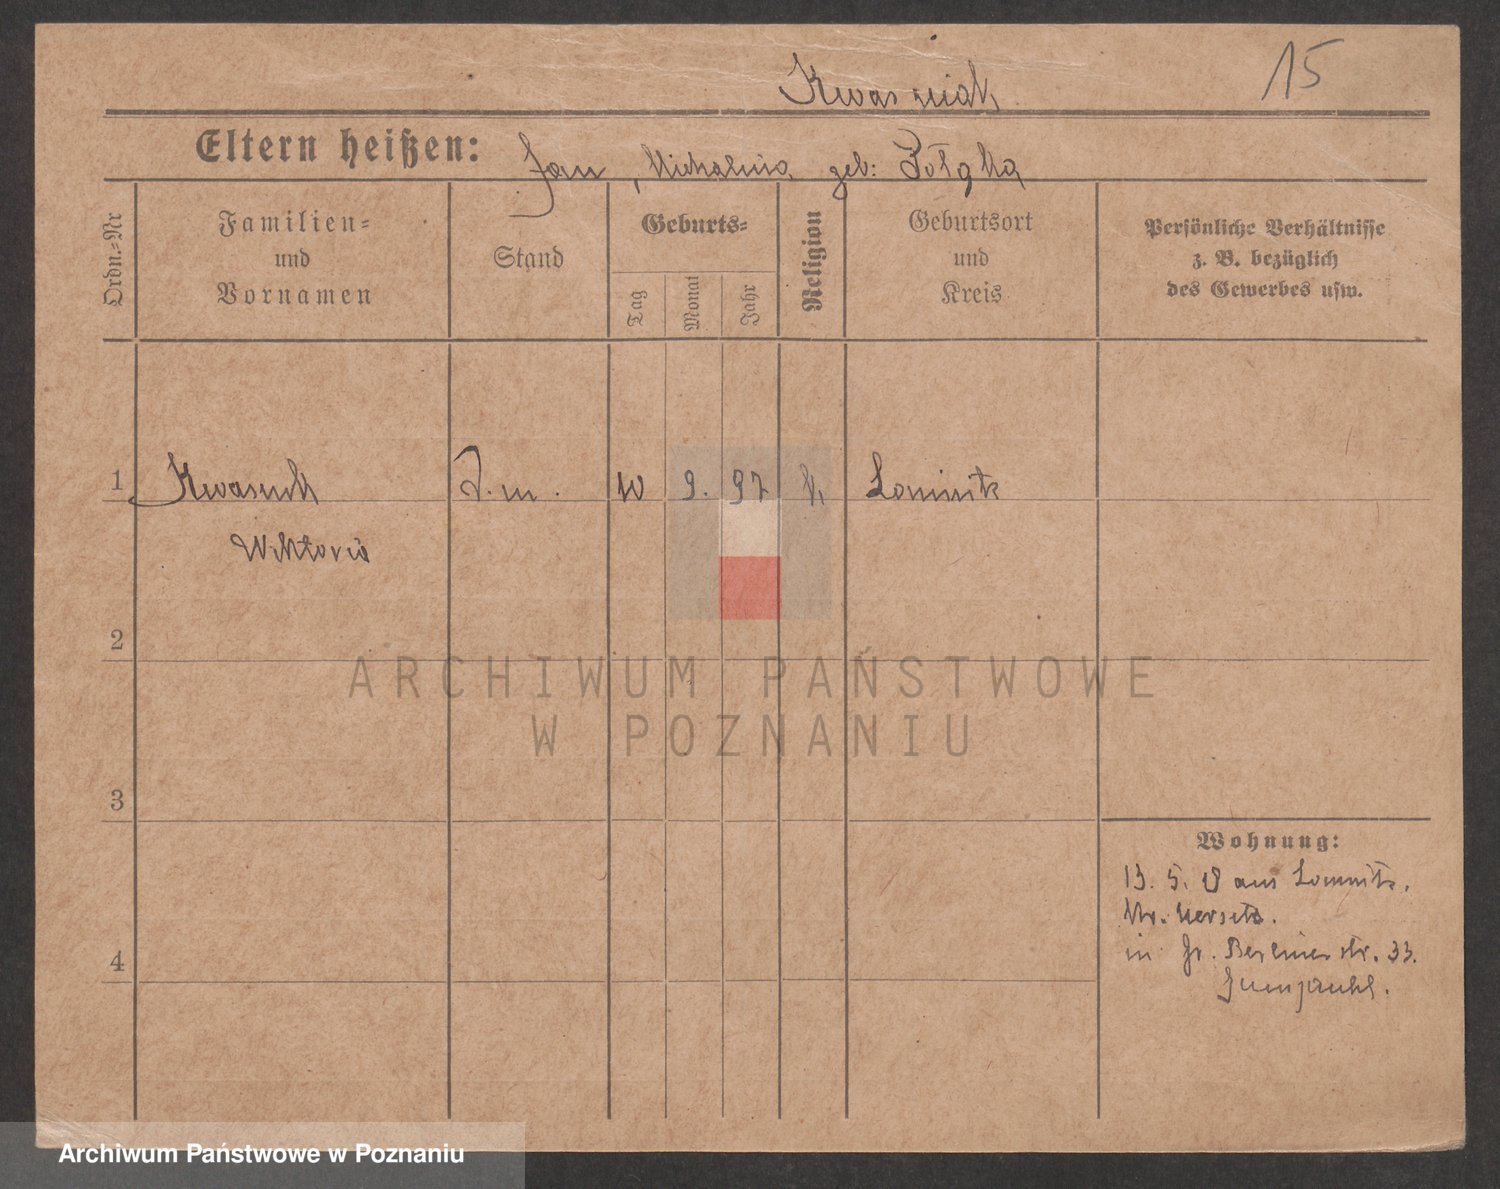 Kwasniak 15
Eltern heißen: Jan, Michalina geb: Polaka
Ordn.=Nr
Familien=
und
Vornamen
Stand
Geburts=
Tag
Monat
Jahr
Religion
Geburtsort
und
Kreis
Persönliche Verhältnisse
z. B. bezüglich
des Gewerbes usw.
1 Kwasniak D. m. 10 9. 97 k. Lomnitz
Wiktoria
2
ARCHIWUM PAŃSTWOWE
W POZNANIU
3
Wohnung:
13. 5. 18 aus Lomnitz.
Kr. Meseritz.
in Gr. Berliner str. 33.
4
Archiwum Państwowe w Poznaniu